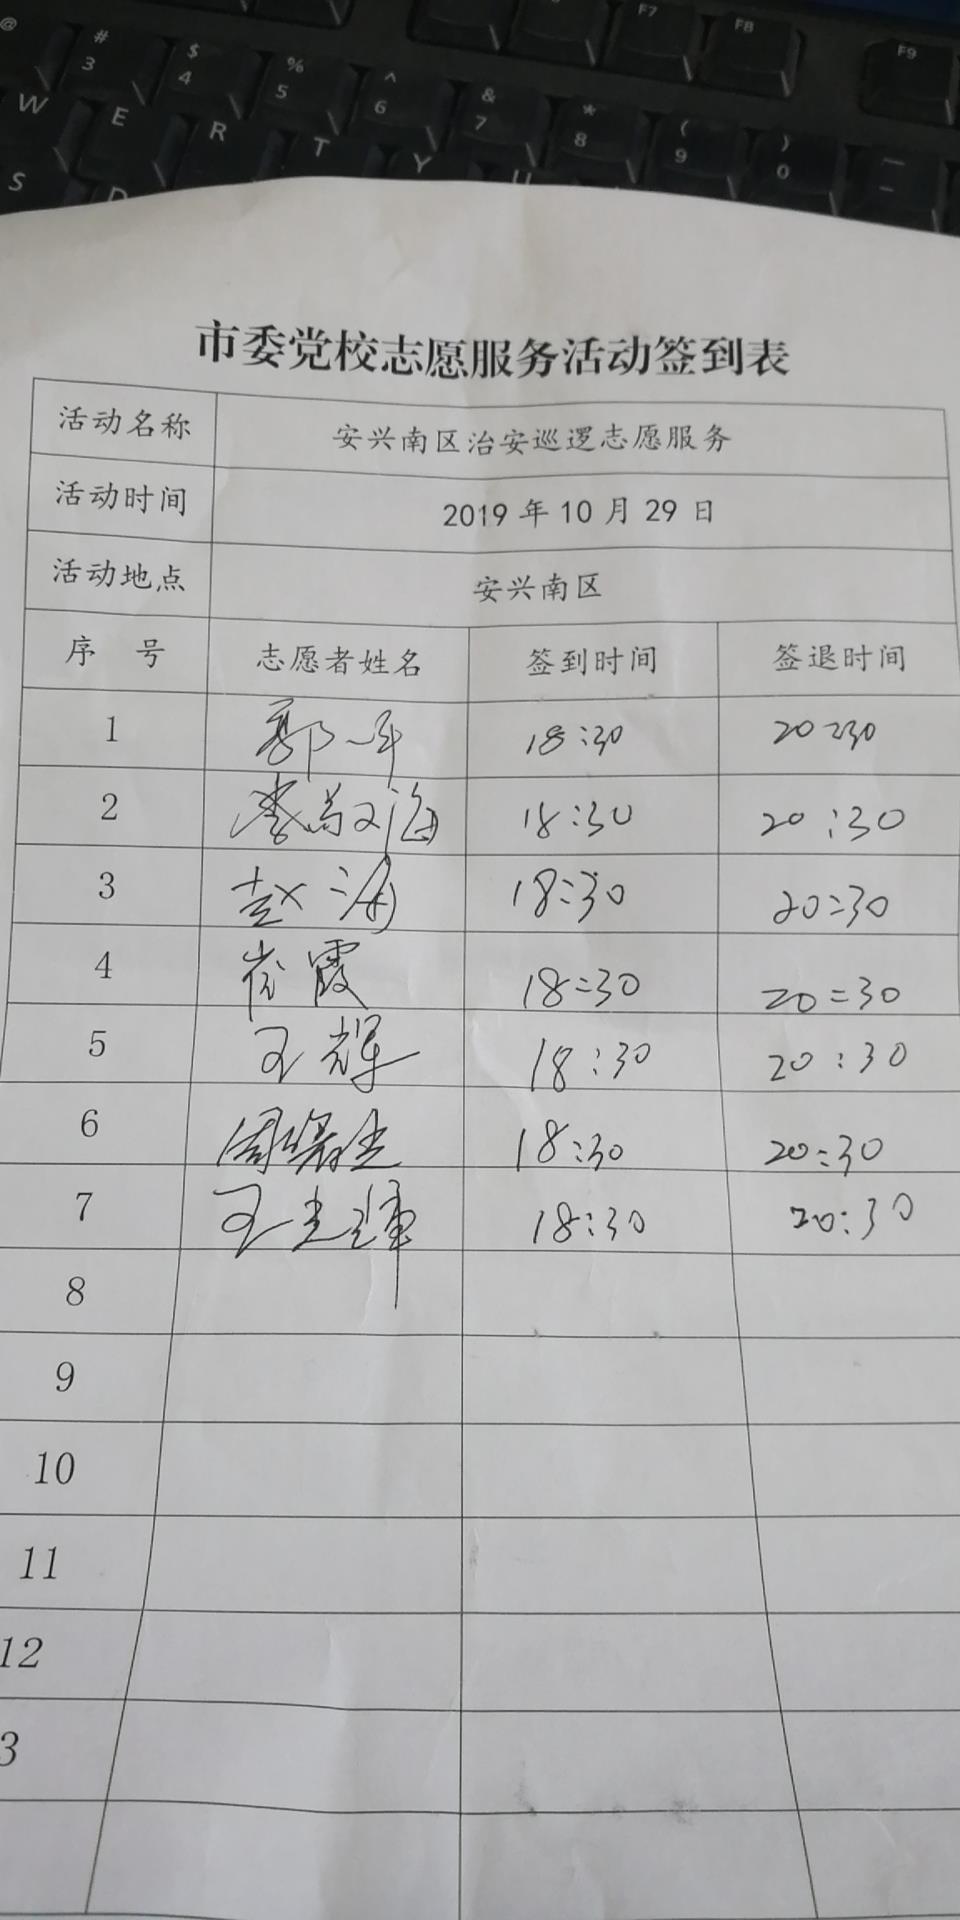 @ # 3 $ 4 % 5 ^ 6 & 7 * 8 ( 9 ) 0 — F7 F8 F9
W E R T Y U
S D
市委党校志愿服务活动签到表
活动名称 安兴南区治安巡逻志愿服务
活动时间 2019 年 10 月 29 日
活动地点 安兴南区
序 号 志愿者姓名 签到时间 签退时间
1 郭一平 18:30 20:30
2 18:30 20:30
3 赵海 18:30 20:30
4 崔霞 18:30 20:30
5 王辉 18:30 20:30
6 18:30 20:30
7 王志辉 18:30 20:30
8
9
10
11
12
3